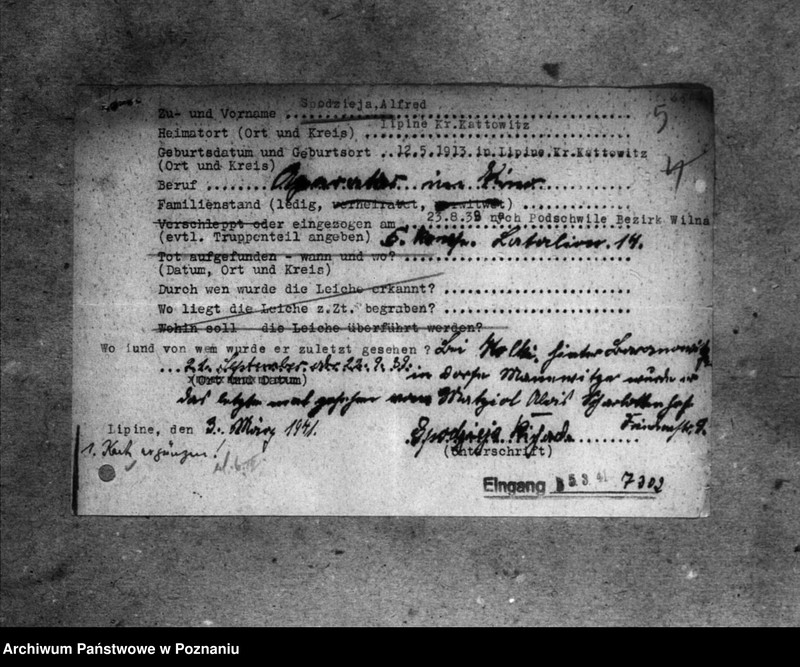 5
4
Zu- und Vorname Spodzieja, Alfred
Heimatort (Ort und Kreis) Lipine Kr.Kattowitz
Geburtsdatum und Geburtsort 12.5.1913 in Lipine, Kr.Kattowitz
(Ort und Kreis)
Beruf Aparater im Kino
Familienstand (ledig, verheiratet, verwitwet)
Verschleppt oder eingezogen am 23.8.39 nach Podschwile Bezirk Wilna
(evtl. Truppenteil angeben) 5. Komp. Batalion. 14.
Tot aufgefunden - wann und wo?
(Datum, Ort und Kreis)
Durch wen wurde die Leiche erkannt?
Wo liegt die Leiche z.Zt. begraben?
Wohin soll die Leiche überführt werden?
Wo und von wem wurde er zuletzt gesehen? Bei hinter
22. September 22.9.39. in Dorfe wurde er
(Ort und Datum)
das letzte mal gesehen vom Alois Scharlottenhof
Lipine, den 3. März 1941. Spodzieja
(Unterschrift)
1. Kart. ergänzen!
Eingang 5.3.41 7302
Archiwum Państwowe w Poznaniu